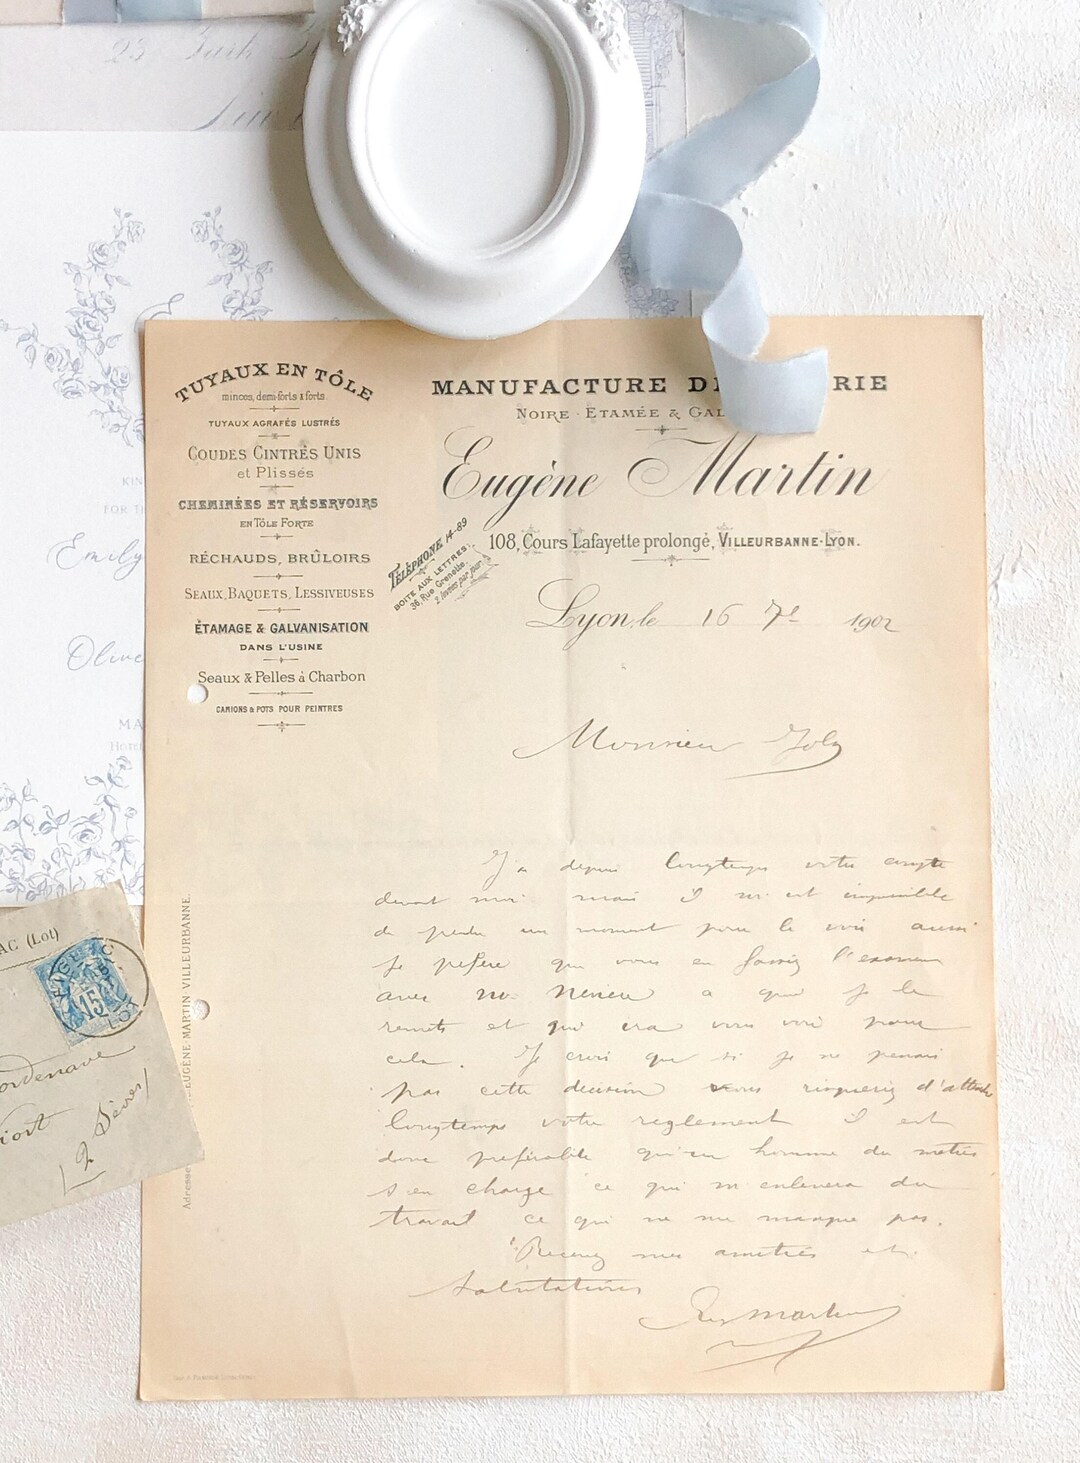 TUYAUX EN TÔLE
minces, demi-forts & forts
TUYAUX AGRAFÉS LUSTRÉS
COUDES CINTRÉS UNIS
et PLISSÉS
CHEMINÉES ET RÉSERVOIRS
EN TÔLE FORTE
RÉCHAUDS, BRÛLOIRS
SEAUX, BAQUETS, LESSIVEUSES
ÉTAMAGE & GALVANISATION
DANS L'USINE
Seaux & Pelles à Charbon
CAMIONS & POTS POUR PEINTRES
MANUFACTURE D RIE
NOIRE - ETAMÉE & GAL
Eugène Martin
108, Cours Lafayette prolongé, VILLEURBANNE-LYON.
TÉLÉPHONE 14-89
BOITE AUX LETTRES
36, Rue Grenette
2 levées par jour
Lyon, le 16 7e 1902
Monsieur Joly
J'ai depuis longtemps votre compte
devant moi mais il m'est impossible
de perdre un moment pour le voir aussi
je préfère que vous en fassiez l'examen
avec mon neveu a qui je le
remets et qui ira vous voir pour
cela. Je crois que si je ne prenais
pas cette décision vous risqueriez d'attendre
longtemps votre règlement il est
donc préférable qu'un homme du métier
s'en charge ce qui m'enlevera du
travail ce qui ne me manque pas.
Recevez mes amitiés et
salutations
Eug Martin
Adresse EUGÈNE MARTIN VILLEURBANNE.
AC (Lot)
15
LOT
Niort
2 Sèvres
Emily